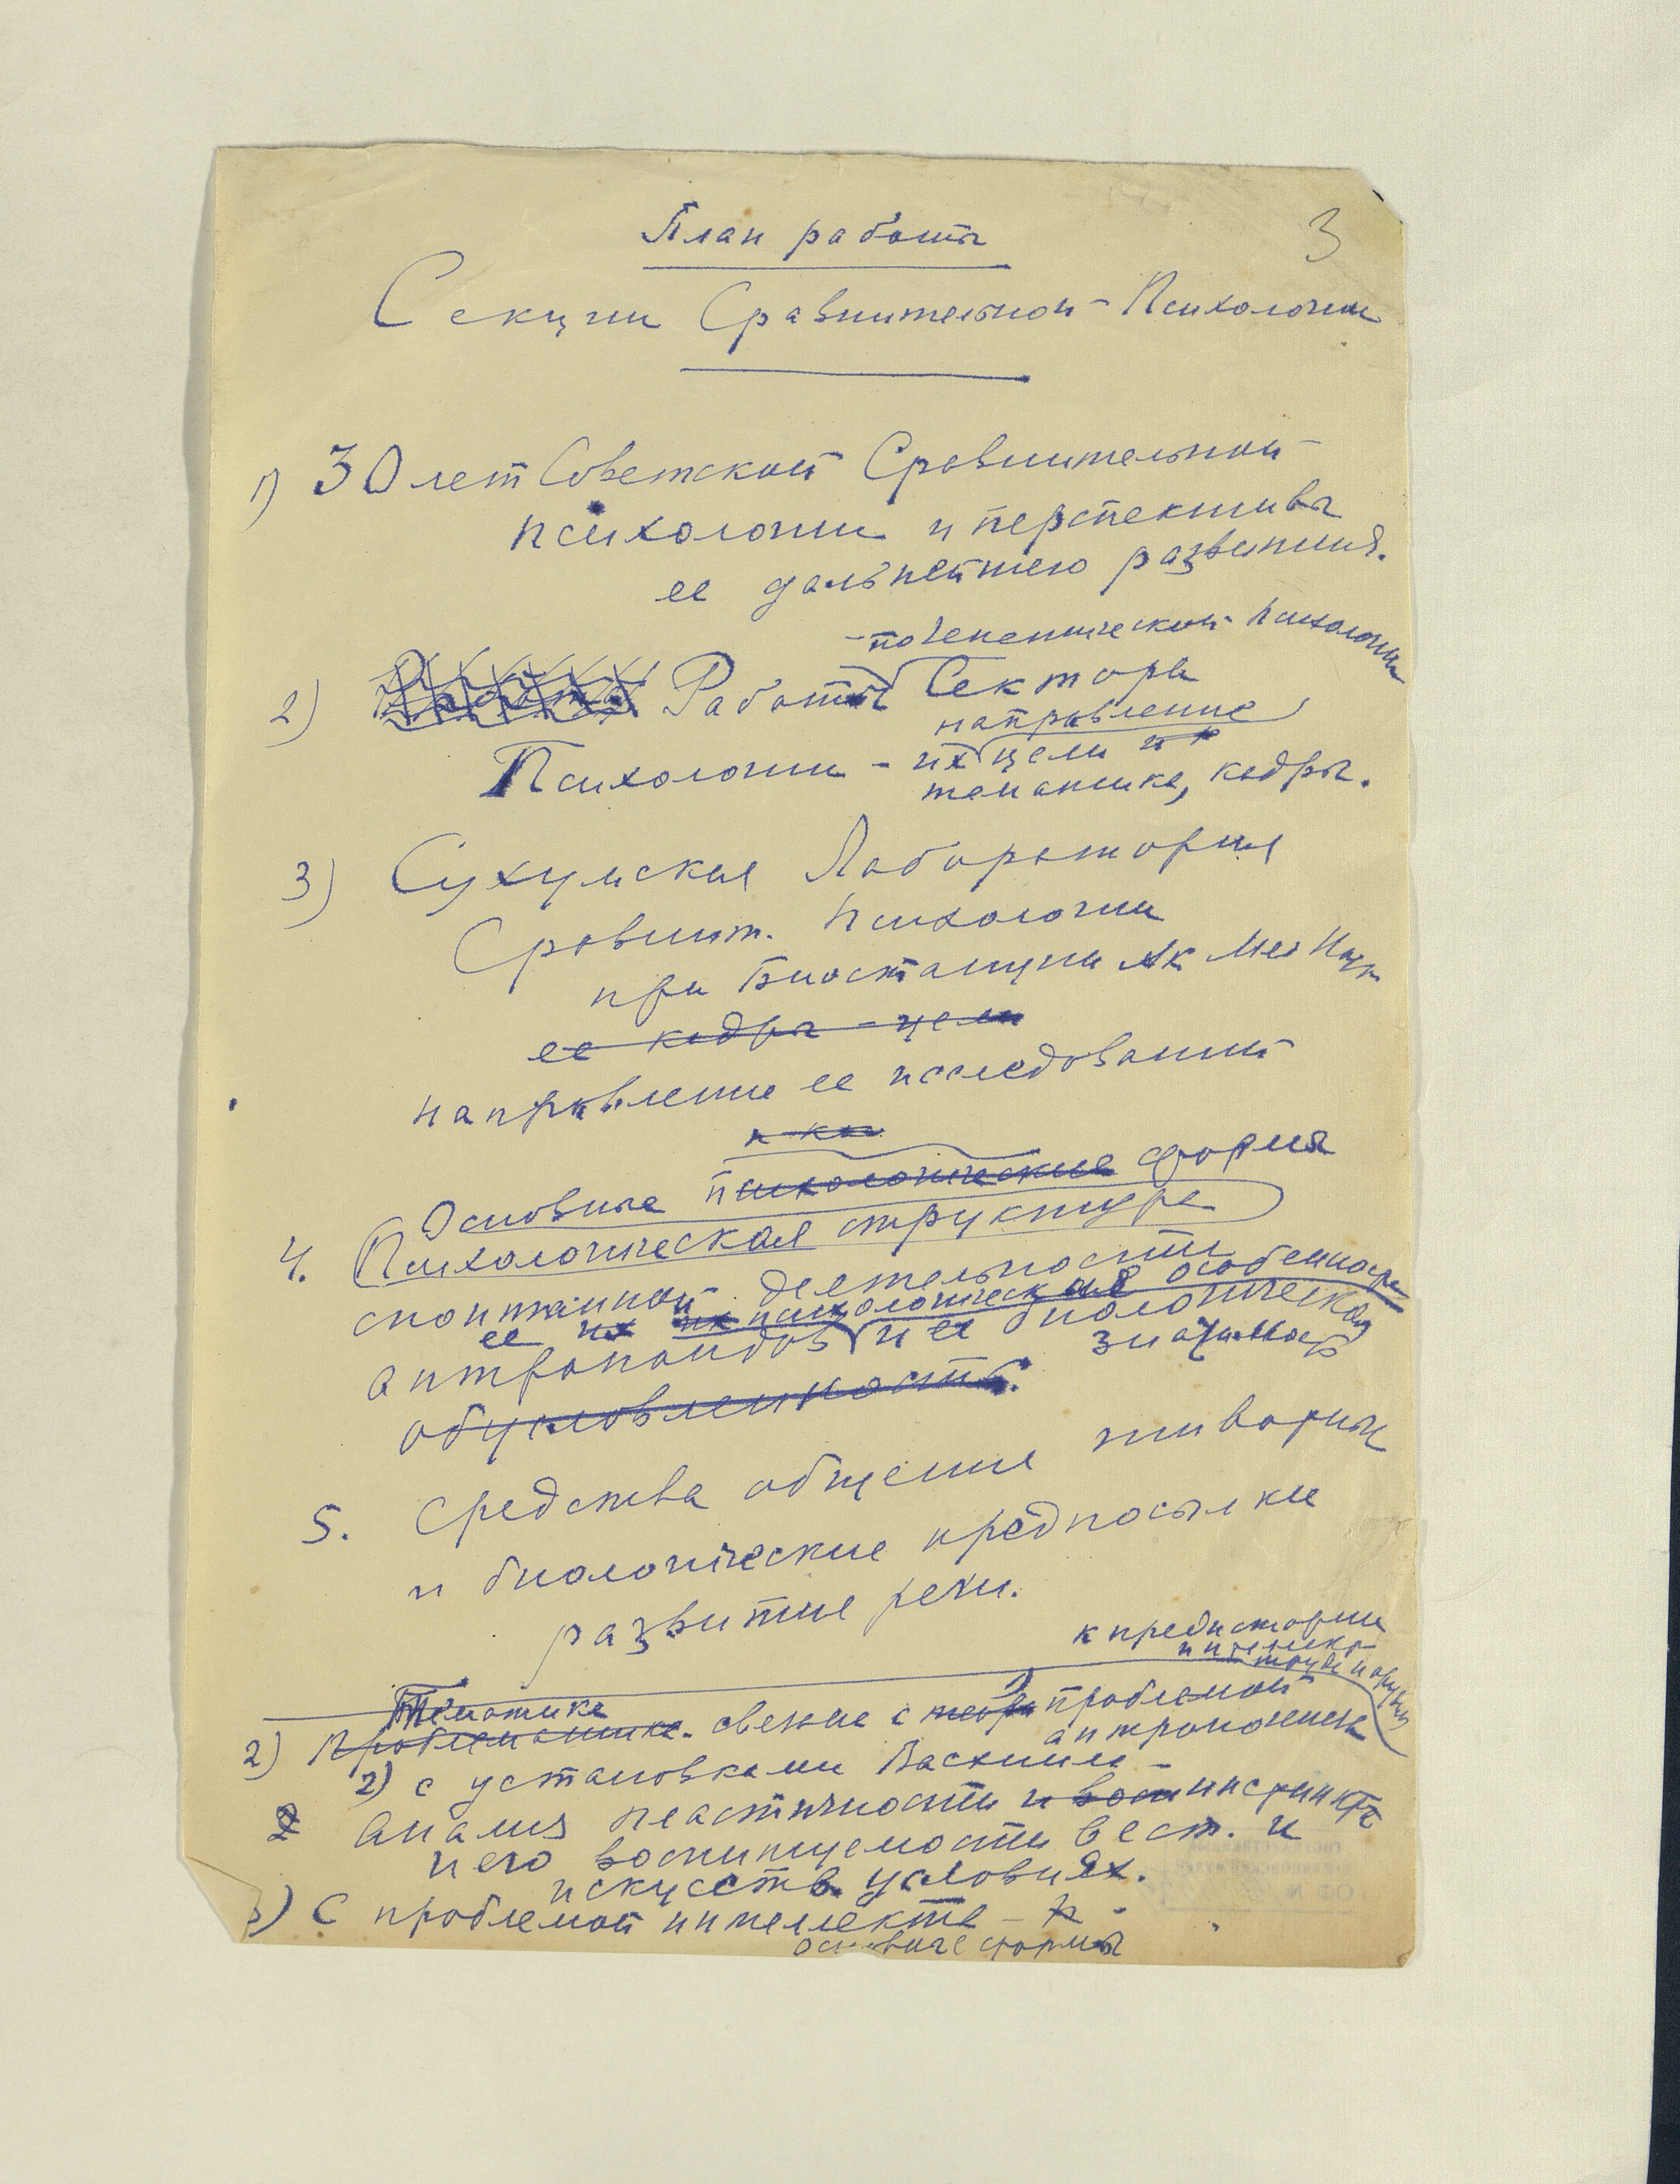 3
План работы
Секции Сравнительной Психологии
1) 30 лет Советской Сравнительной
психологии и перспективы
ее дальнейшего развития.
- по генетической психологии
2) Работы Сектора
направление
Психологии - их цели и
тематика, кадры.
3) Сухумская Лаборатория
Сравнит. психологии
при Биостанции Ак Мед Наук
ее кадры - цели
направление ее исследований
Основные психологические формы
4. Психологическая структура
спонтанной деятельности
ее их их психологическая особенность
антропоидов и ее биологическая
значимость
обусловленность.
5. Средства общения животных
и биологические предпосылки
развития речи.
к предистории
интеллекта
Тематика
2) Проблематика. связание с проблемой
антропогенеза
2) с установками
2 Анализ пластичности и инстинкта
и его воспитуемости в ест. и
искусств. условиях.
3) С проблемой интеллекта -
основные формы